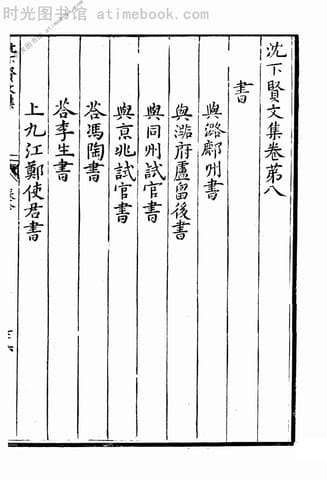 时光图书馆 - www.atimebook.com
沈下賢文集卷第八
書
與潞鄜州書
與潞府盧留後書
與同州試官書
與京兆試官書
荅馮陶書
荅李生書
上九江鄭使君書